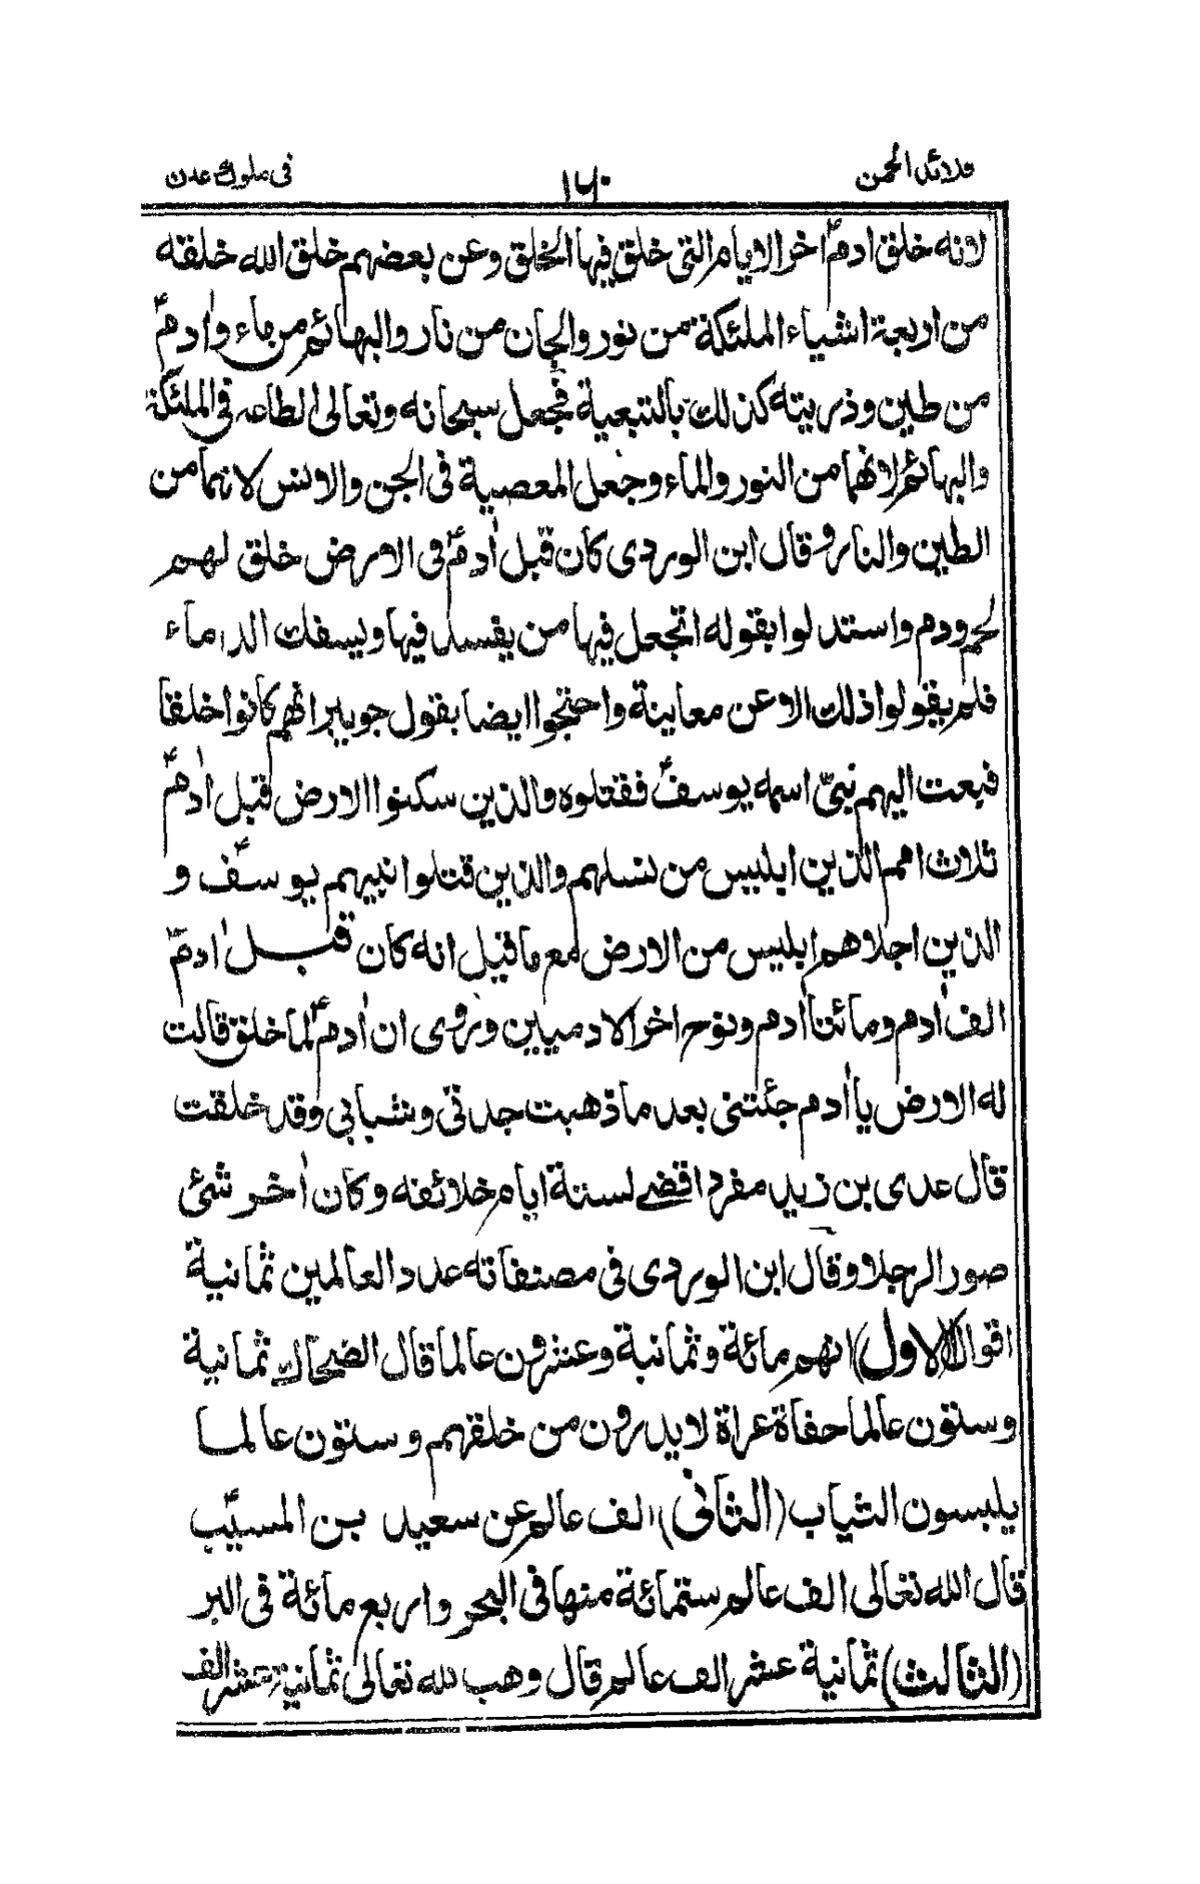 قلائد الجمن
١٦٠
فى ملوك عدن
لانه خلق ادمؑ اخر الايام التى خلق فيها الخلق وعن بعضهم خلق الله خلقه
من اربعة اشياء الملئكة من نور والجان من نار والبهائم من ماء وادمؑ
من طين وذريته كذلك بالتبعية فجعل سبحانه وتعالى الطاعه فى الملئكة
والبهائم لانهما من النور والماء وجعل المعصية فى الجن والانس لانهما من
الطين والنار وقال ابن الوردى كان قبل اٰدمؑ فى الارض خلق لهم
لحم ودم واستدلوا بقوله اتجعل فيها من يفسد فيها ويسفك الدماء
فلم يقولوا ذلك الا عن معاينة واحتجوا ايضا بقول جويبر انهم كانوا خلقا
فبعث اليهم نبىّ اسمه يوسفؑ فقتلوه والذين سكنوا الارض قبل اٰدمؑ
ثلاث امم الذين ابليس من نسلهم والذين قتلوا نبيهم يوسفؑ و
الذين اجلاهم ابليس من الارض مع ما قيل انه كان قبل اٰدمؑ
الف اٰدم ومائتا اٰدم ونوح اخر الادميين وروى ان اٰدمؑ لما خلق قالت
له الارض يا اٰدم جئتنى بعد ما ذهبت جدتى وشبابى وقد خلقت
قال عدى بن زيد مفردا قضے لستة ايام خلائفه وكان اٰخر شئ
صور الرجلا وقال ابن الوردى فى مصنفاته عدد العالمين ثمانية
اقوال (الاول) انهم مائة وثمانية وعشرون عالما قال الضحاك ثمانية
وستون عالما حفاة عراة لا يدرون من خلقهم وستون عالما
يلبسون الثياب (الثانى) الف عالم عن سعيد بن المسيّب
قال الله تعالى الف عالم ستمائة منها فى البحر واربع مائة فى البر
(الثالث) ثمانية عشر الف عالم قال وهب لله تعالى ثمانية عشر الف